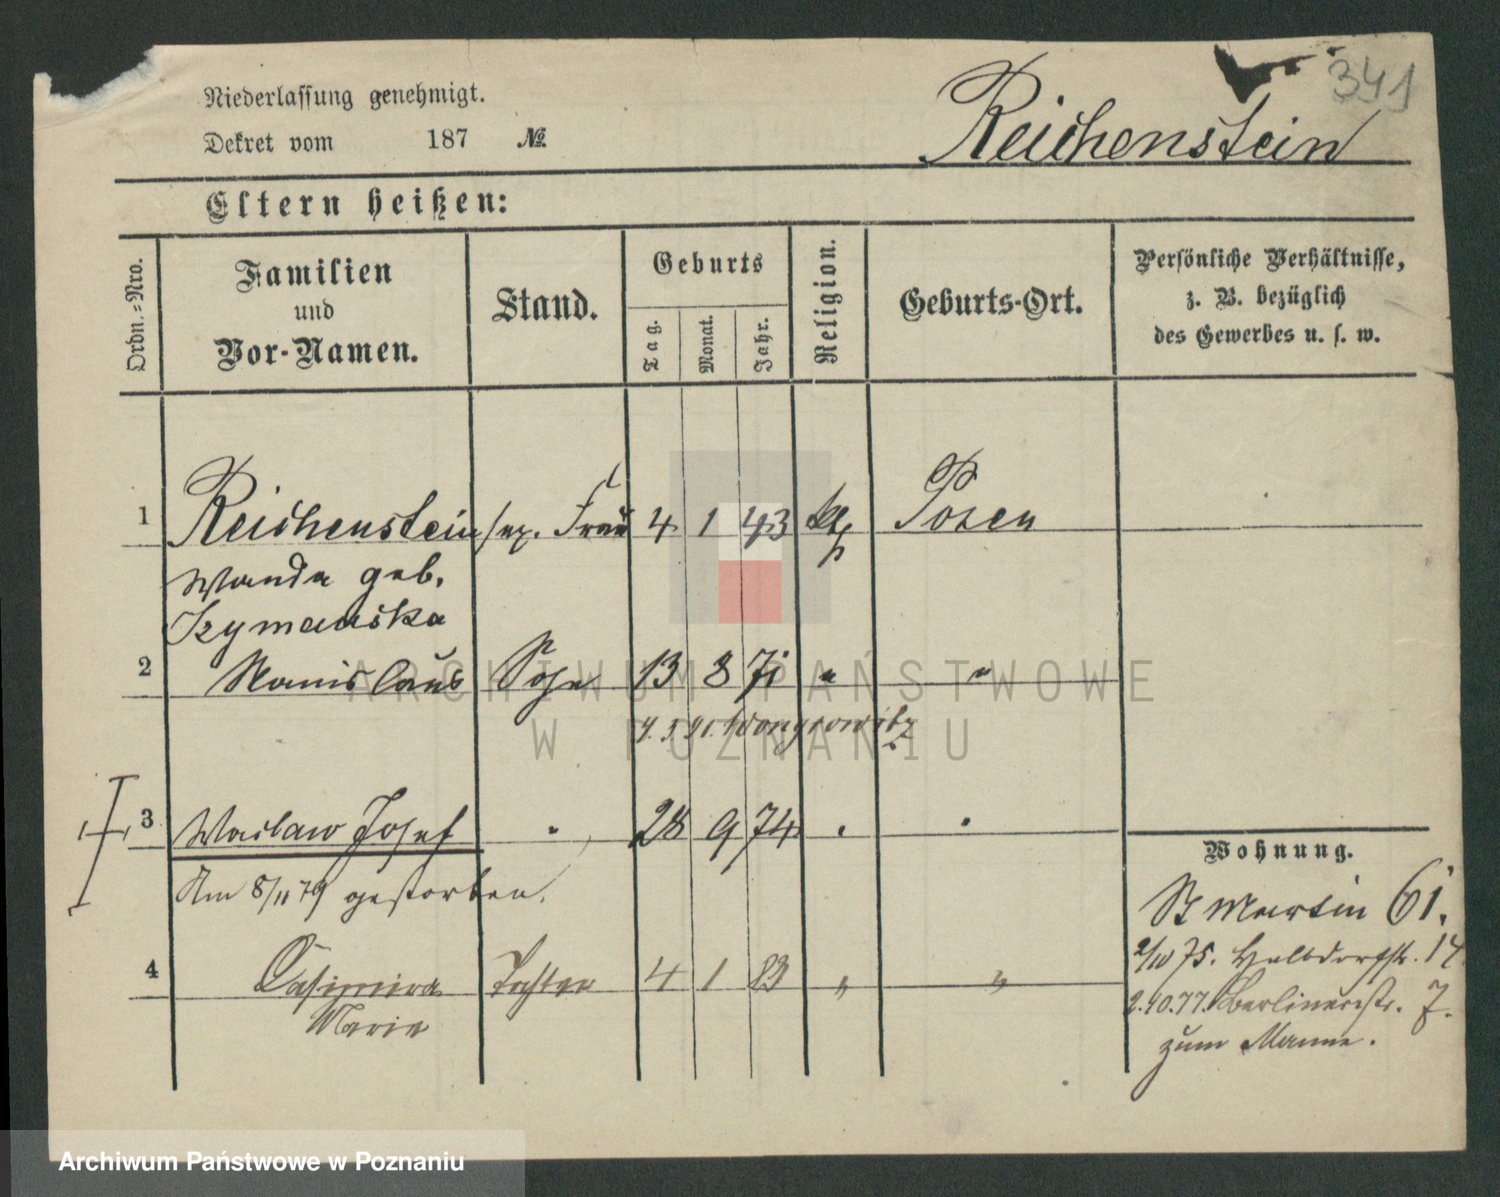 341
Niederlassung genehmigt.
Dekret vom 187 №
Reichenstein
Eltern heißen:
Ordn.-Nro.
Familien
und
Vor-Namen.
Stand.
Geburts
Tag.
Monat.
Jahr.
Religion.
Geburts-Ort.
Persönliche Verhältnisse,
z. B. bezüglich
des Gewerbes u. s. w.
1 Reichenstein sep. Frau 4 1 43 Posen
Wanda geb.
Szymańska
2 Stanislaus Sohn 13 8 71 " "
Wongrowitz
3 Waclaw Josef " 28 9 74 " "
Am 8/11 79 gestorben.
4 Casimira Tochter 4 1 83 " "
Marie
Wohnung.
St Martin 61.
75. Halbdorfstr. 17
2.10.77. Berlinerstr. 7.
zum Manne.
ARCHIWUM PAŃSTWOWE
W POZNANIU
Archiwum Państwowe w Poznaniu